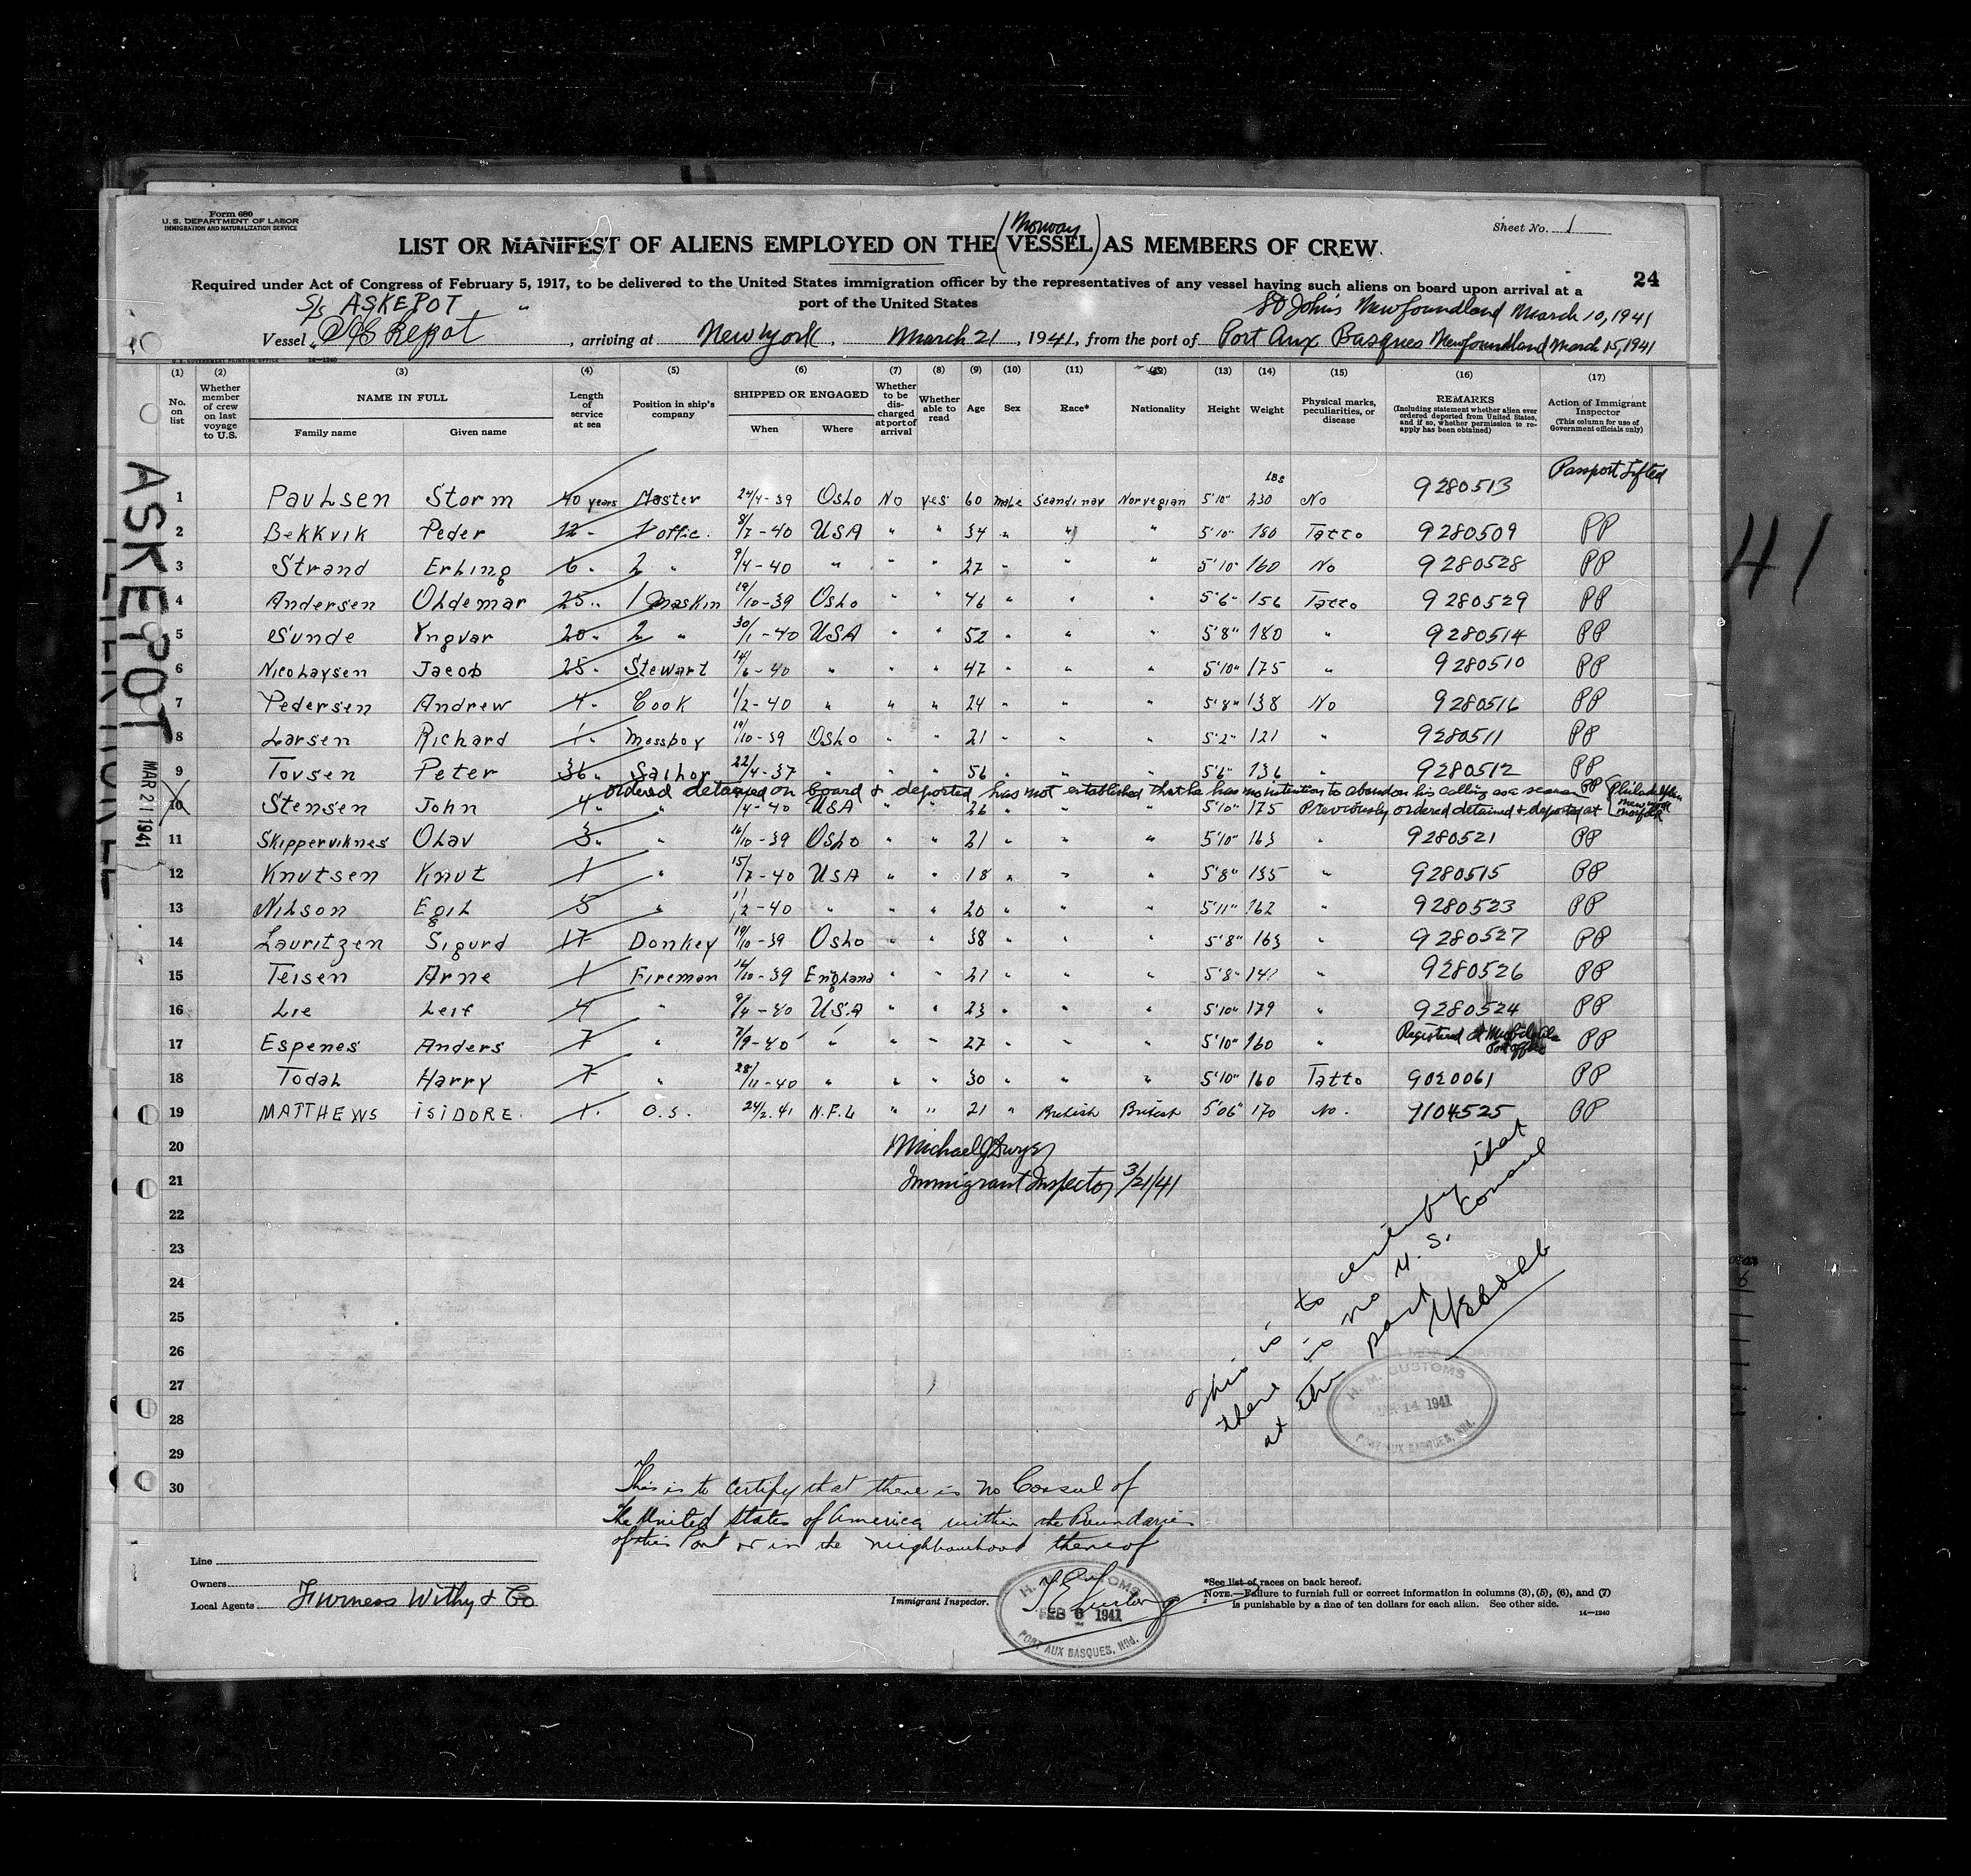 Form 680
U. S. DEPARTMENT OF LABOR
IMMIGRATION AND NATURALIZATION SERVICE
Sheet No. 1
(Norway)
LIST OR MANIFEST OF ALIENS EMPLOYED ON THE VESSEL AS MEMBERS OF CREW
24
Required under Act of Congress of February 5, 1917, to be delivered to the United States immigration officer by the representatives of any vessel having such aliens on board upon arrival at a
port of the United States
S/S ASKEPOT
St Johns Newfoundland March 10, 1941
Vessel Askepot, arriving at New York, March 21, 1941, from the port of Port Aux Basques Newfoundland March 15, 1941
U. S. GOVERNMENT PRINTING OFFICE 14—1240
(1) (2) (3) (4) (5) (6) (7) (8) (9) (10) (11) (12) (13) (14) (15) (16) (17)
No. on list
Whether member of crew on last voyage to U.S.
NAME IN FULL
Family name
Given name
Length of service at sea
Position in ship's company
SHIPPED OR ENGAGED
When
Where
Whether to be discharged at port of arrival
Whether able to read
Age
Sex
Race*
Nationality
Height
Weight
Physical marks, peculiarities, or disease
REMARKS
(Including statement whether alien ever ordered deported from United States, and if so, whether permission to reapply has been obtained)
Action of Immigrant Inspector
(This column for use of Government officials only)
1 Paulsen Storm 40 years Master 24/4-39 Oslo No yes 60 male Scandinav Norvegian 5'10" 230 LBS No 9280513 Passport Lifted
2 Bekkvik Peder 12 " 1 offic. 8/7-40 USA " " 34 " " " 5'10" 180 Tatto 9280509 PP
3 Strand Erling 6 " 2 " 9/4-40 " " " 27 " " " 5'10" 160 No 9280528 PP
4 Andersen Oldemar 25 " 1 Maskin 19/10-39 Oslo " " 46 " " " 5'6" 156 Tatto 9280529 PP
5 Sunde Yngvar 20 " 2 " 30/1-40 USA " " 52 " " " 5'8" 180 " 9280514 PP
6 Nicolaysen Jacob 28 " Stewart 14/6-40 " " " 47 " " " 5'10" 175 " 9280510 PP
7 Pedersen Andrew 4 " Cook 1/2-40 " " " 24 " " " 5'8" 138 No 9280516 PP
8 Larsen Richard 1 " Messboy 19/10-39 Oslo " " 21 " " " 5'2" 121 " 9280511 PP
9 Tovsen Peter 36 " Sailor 22/4-37 " " " 56 " " " 5'6" 136 " 9280512 PP
ordered detained on board & deported has not established that he has no intention to abandon his calling as a seaman PP
10 Stensen John 4 " " /4-40 USA " " 26 " " " 5'10" 175 Previously ordered detained & deported at Philadelphia New York Norfolk
11 Skipperviknes Olav 3 " " 16/10-39 Oslo " " 21 " " " 5'10" 163 " 9280521 PP
12 Knutsen Knut 1 " 15/7-40 USA " " 18 " " " 5'8" 135 " 9280515 PP
13 Nilson Egil 5 " /2-40 " " " 20 " " " 5'11" 162 " 9280523 PP
14 Lauritzen Sigurd 17 Donkey 19/10-39 Oslo " " 38 " " " 5'8" 163 " 9280527 PP
15 Teisen Arne 1 Fireman 16/10-39 England " " 21 " " " 5'8" 141 " 9280526 PP
16 Lie Leif 4 " 9/4-40 U.S.A " " 23 " " " 5'10" 179 " 9280524 PP
17 Espenes Anders 7 " 7/9-40 " " " 27 " " " 5'10" 160 " Registered at Post office PP
18 Todal Harry 7 " 28/11-40 " " " 30 " " " 5'10" 160 Tatto 9020061 PP
19 MATTHEWS ISIDORE 1. O.S. 24/2.41 N.F.L " " 21 " British British 5'06" 170 No. 9104525 PP
20
21
22
23
24
25
26
27
28
29
30
Immigrant Inspector 3/21/41
This is to certify that
there is no U. S. Consul
at the port
H. M. CUSTOMS
MAR 14 1941
PORT AUX BASQUES, Nfld.
This is to certify that there is no Consul of
the United States of America within the Boundaries
of this Port or in the neighbourhood thereof
Line
Owners
Local Agents Furness Withy & Co
Immigrant Inspector.
H. M. CUSTOMS
FEB 6 1941
PORT AUX BASQUES, Nfld.
*See list of races on back hereof.
NOTE.—Failure to furnish full or correct information in columns (3), (5), (6), and (7)
is punishable by a fine of ten dollars for each alien. See other side.
14—1240
ASKEPOT
MAR 21 1941
41